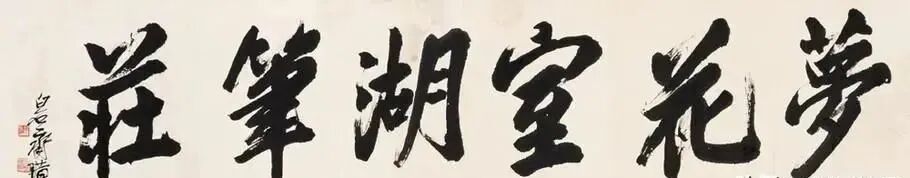 夢花室湖筆莊
白石齊璜